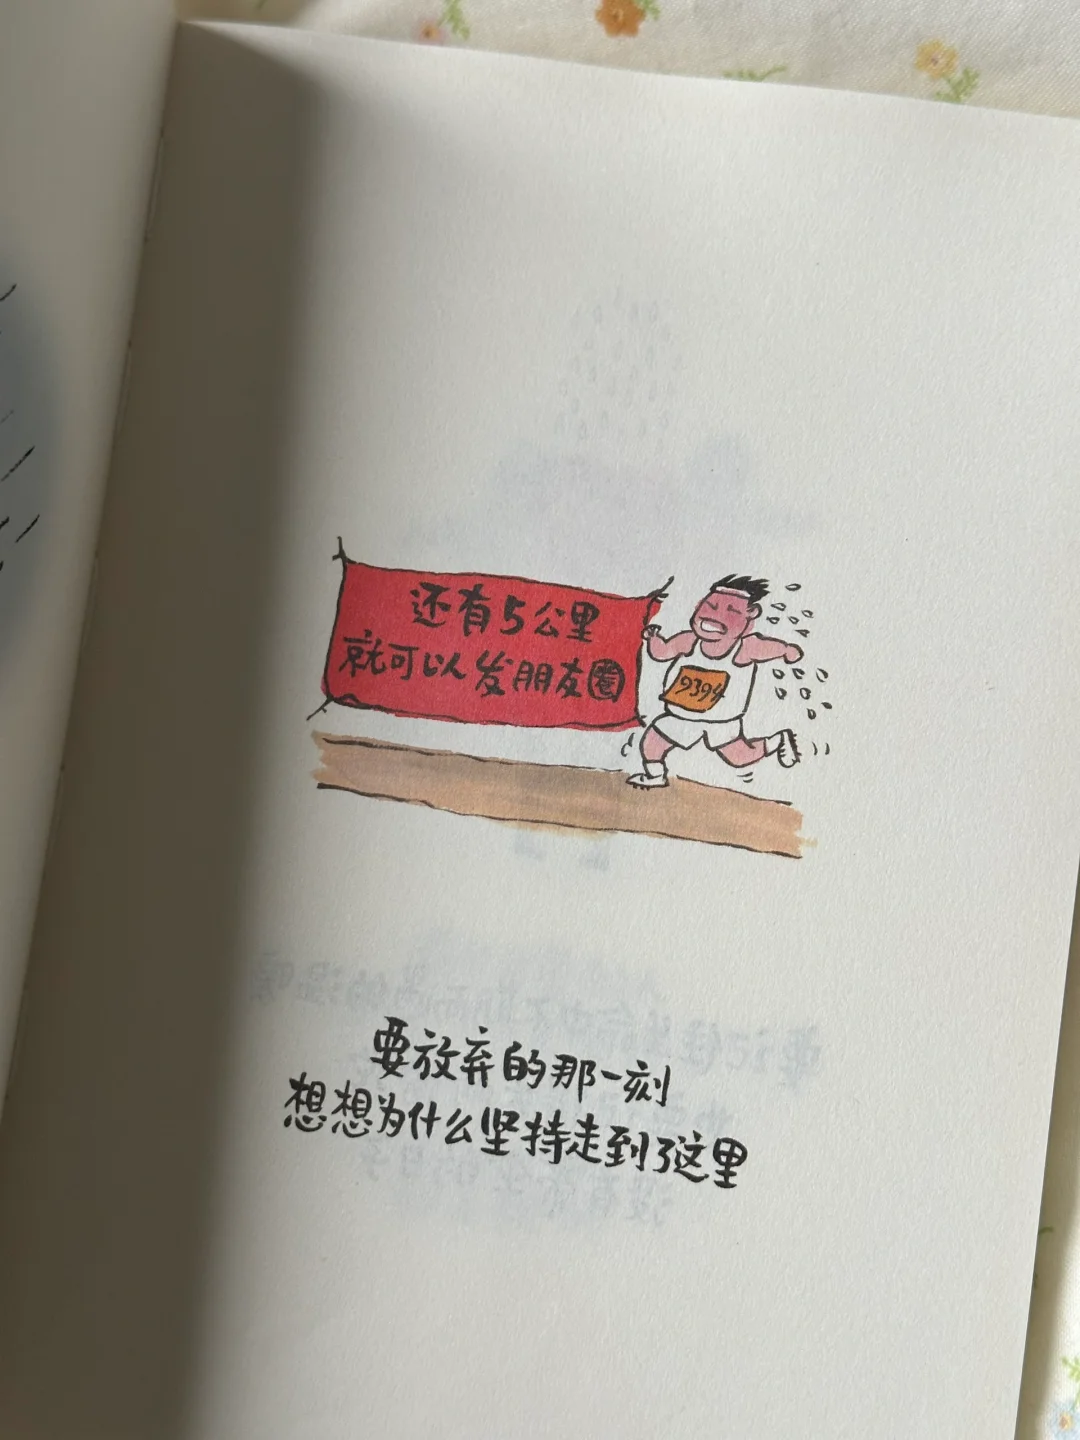 还有5公里
就可以发朋友圈
9394
要放弃的那一刻
想想为什么坚持走到了这里